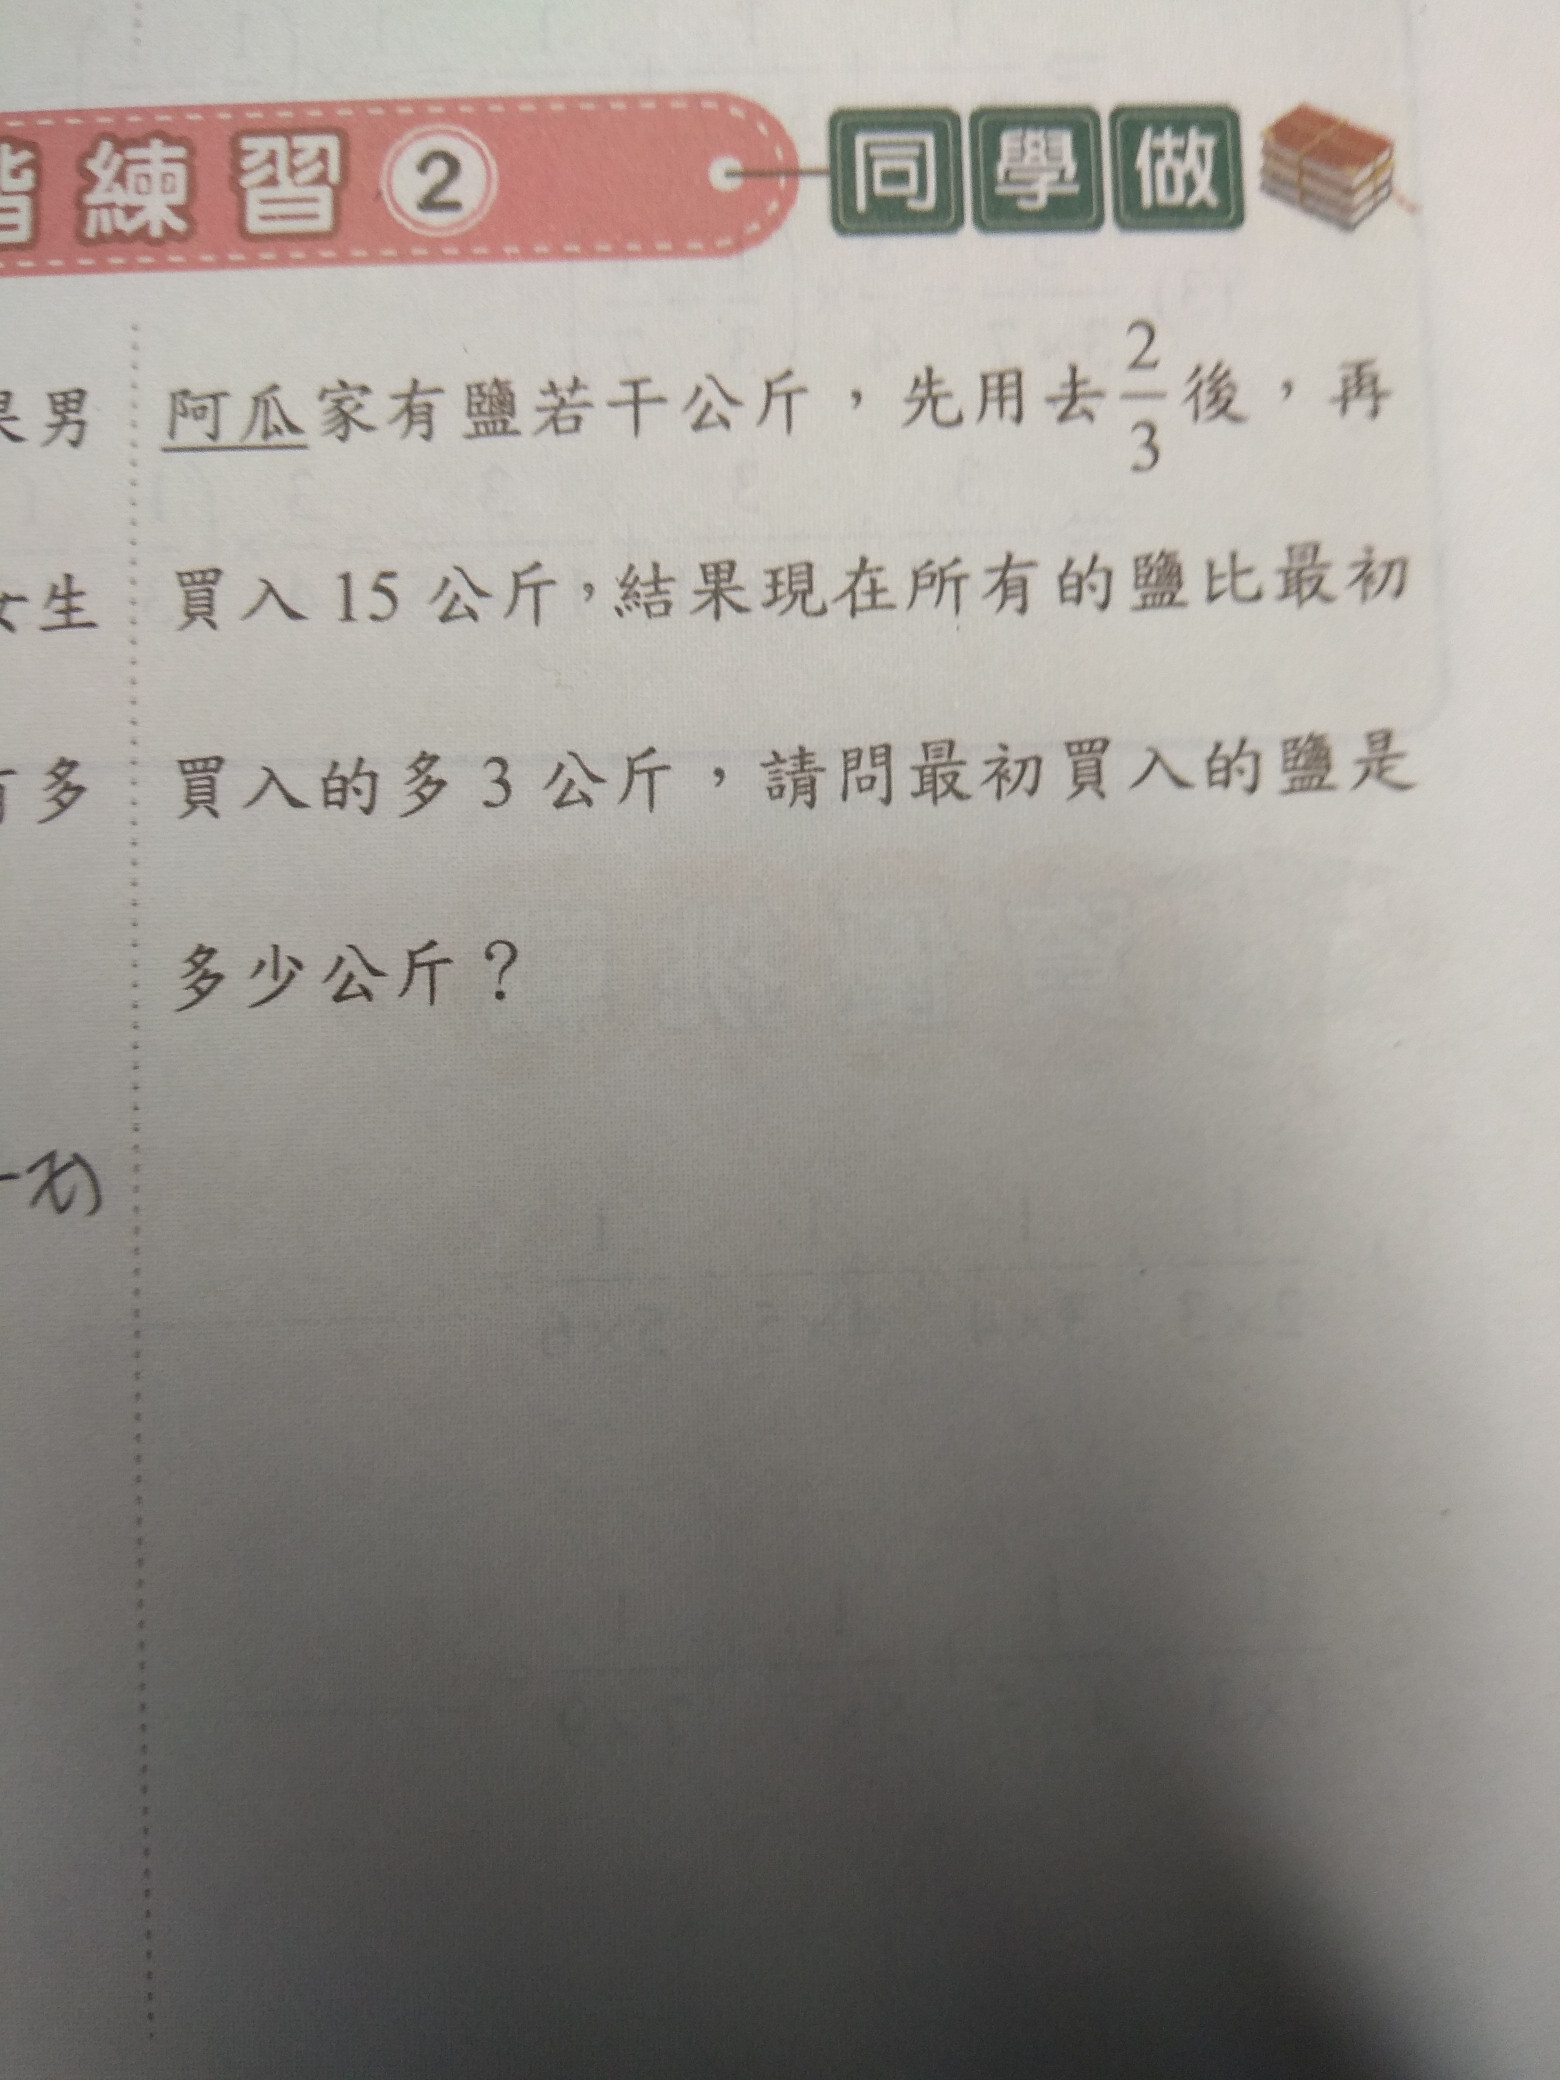 階練習 2 同學做
果男
阿瓜家有鹽若干公斤，先用去2/3後，再
女生
買入 15 公斤，結果現在所有的鹽比最初
有多
買入的多 3 公斤，請問最初買入的鹽是
多少公斤？